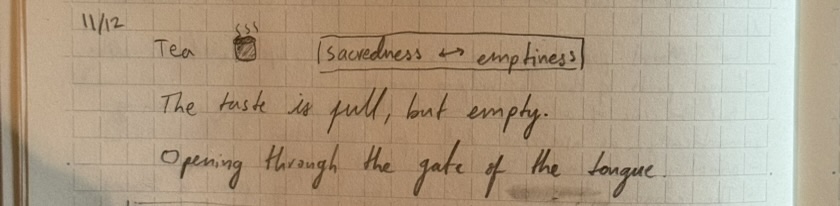 11/12
Tea sacredness ↔ emptiness
The taste is full, but empty.
Opening through the gate of the tongue.